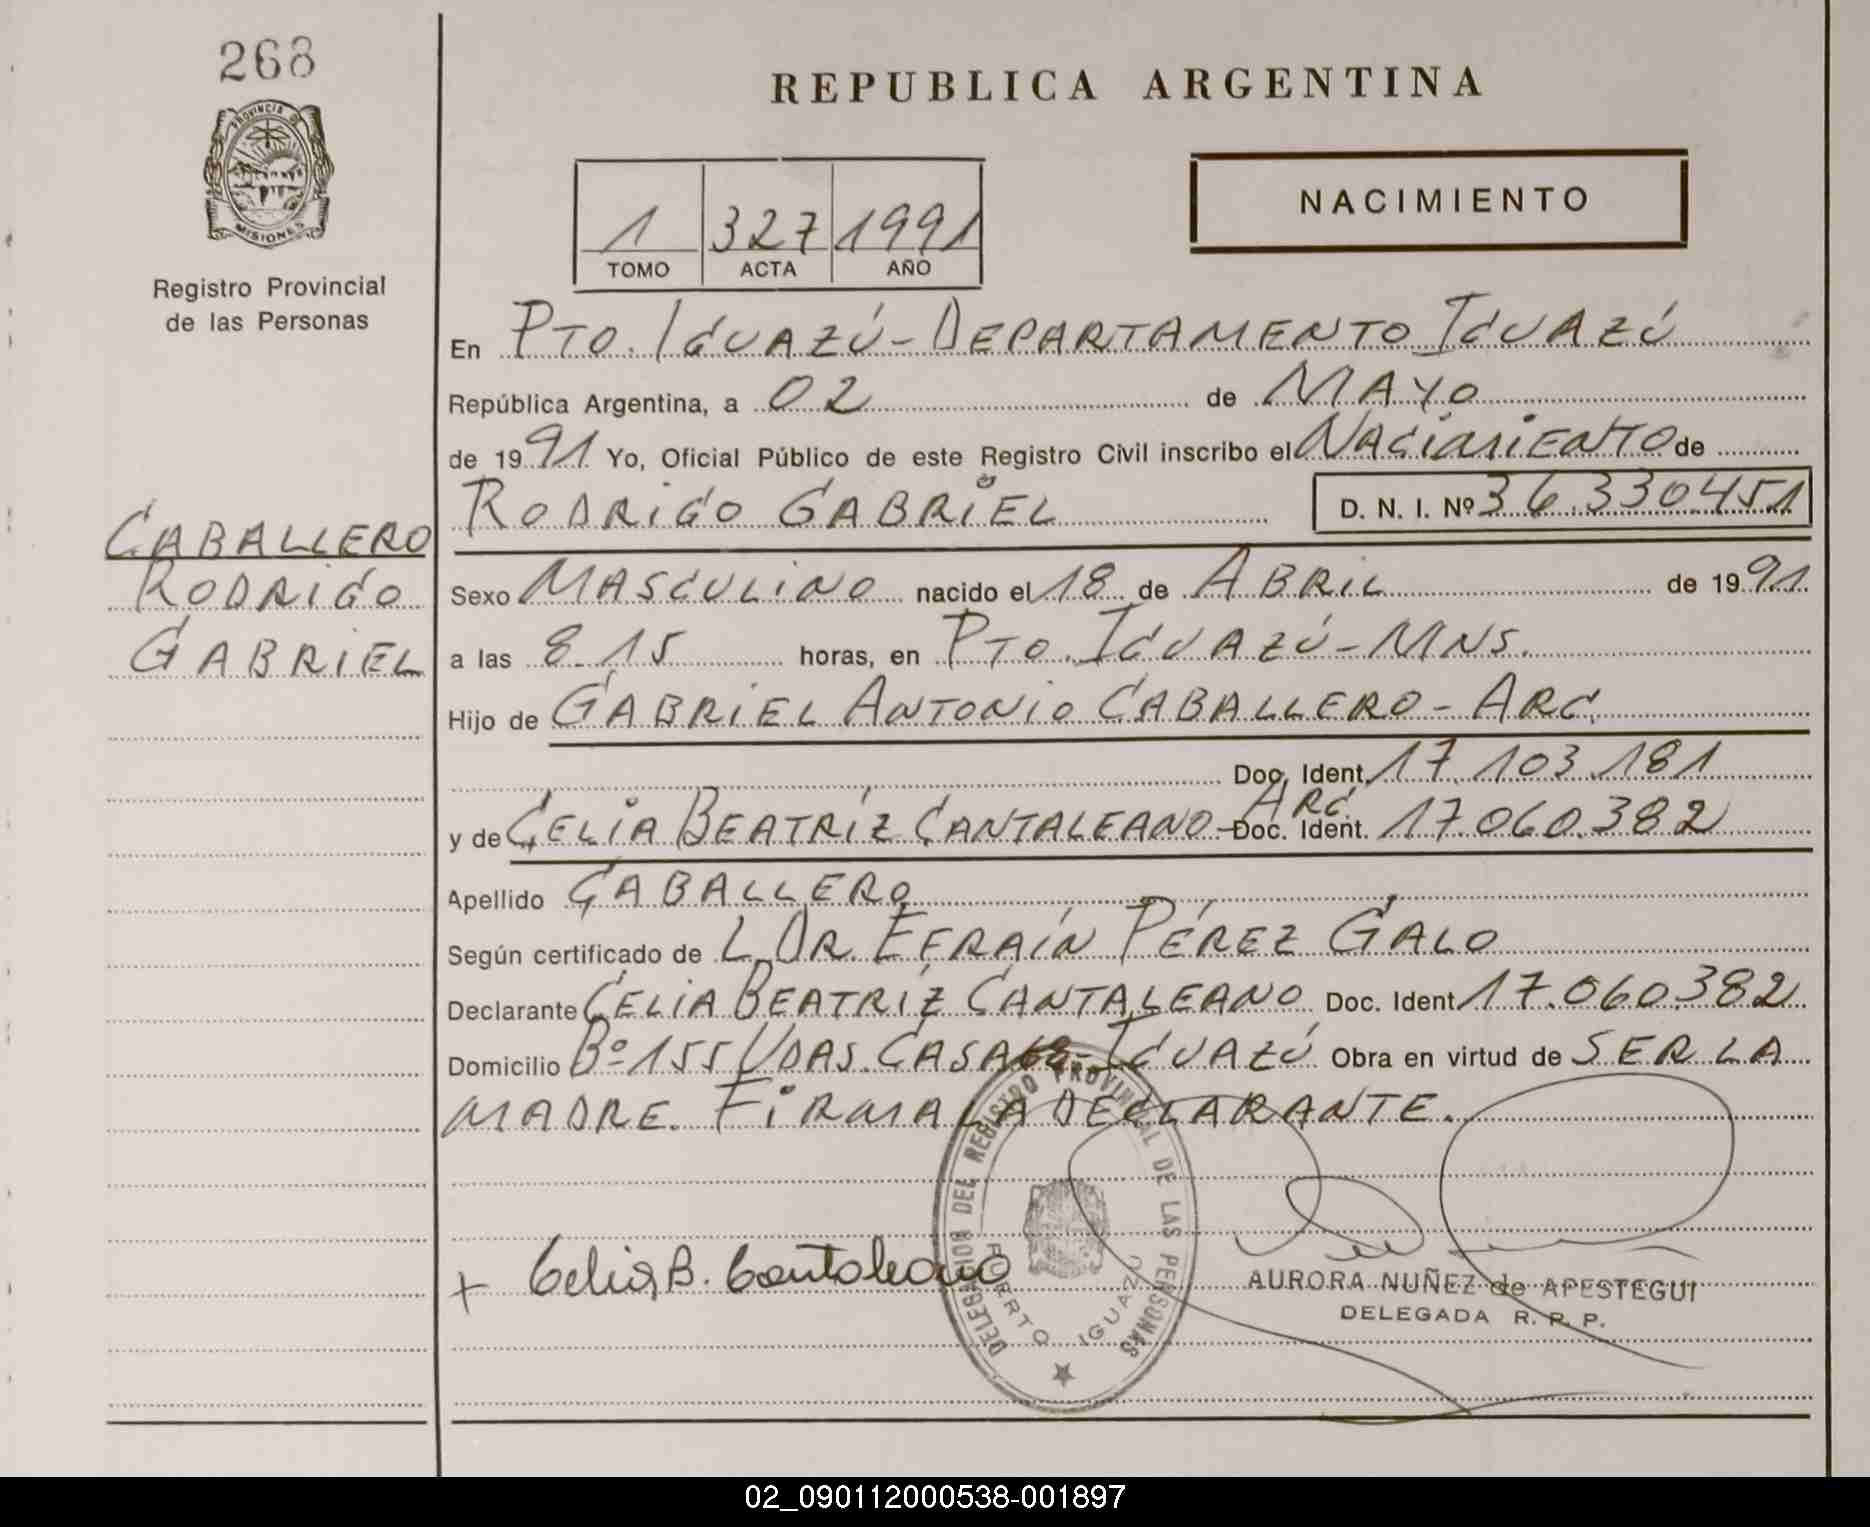 268
PROVINCIA DE
MISIONES
Registro Provincial
de las Personas
CABALLERO
RODRIGO
GABRIEL
REPUBLICA ARGENTINA
NACIMIENTO
1 327 1991
TOMO ACTA AÑO
En PTO. IGUAZÚ - DEPARTAMENTO IGUAZÚ
República Argentina, a 02 de MAYO
de 1991 Yo, Oficial Público de este Registro Civil inscribo el NACIMIENTO de
RODRIGO GABRIEL D. N. I. Nº 36.330.451
Sexo MASCULINO nacido el 18 de ABRIL de 1991
a las 8.15 horas, en PTO. IGUAZÚ - MNS.
Hijo de GABRIEL ANTONIO CABALLERO - ARG.
Doc. Ident. 17.103.181
y de CELIA BEATRÍZ CANTALEANO - ARG. Doc. Ident. 17.060.382
Apellido CABALLERO
Según certificado de L. DR. EFRAÍN PÉREZ GALO
Declarante CELIA BEATRÍZ CANTALEANO Doc. Ident 17.060.382
Domicilio Bº 155 VDAS. CASA - IGUAZÚ Obra en virtud de SER LA
MADRE. FIRMA LA DECLARANTE.
DELEGACION DEL REGISTRO PROVINCIAL DE LAS PERSONAS
PUERTO IGUAZU
+ Celia B. Cantaleano
AURORA NUÑEZ de APESTEGUI
DELEGADA R. P. P.
02_090112000538-001897